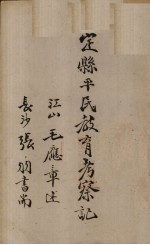 定縣平民教育考察記
江山毛應章述
長沙張朋書耑